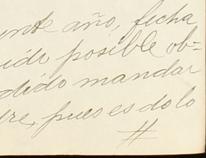 ente año, fecha
sido posible ob-
dido mandar
re, pues es dolo